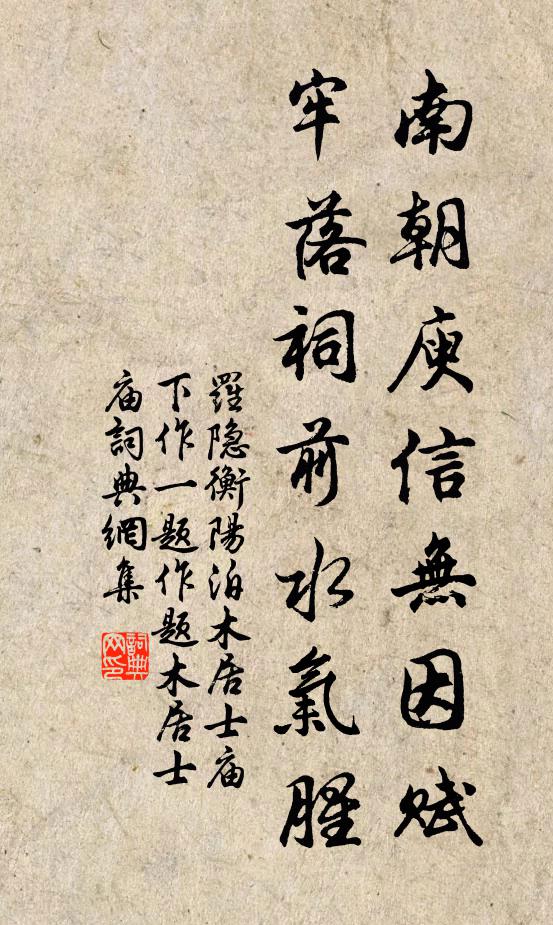 南朝庾信無因賦
牢落祠前水氣腥
羅隐衡陽泊木居士庙
下作一題作题木居士
庙詞典網集
詞典网印